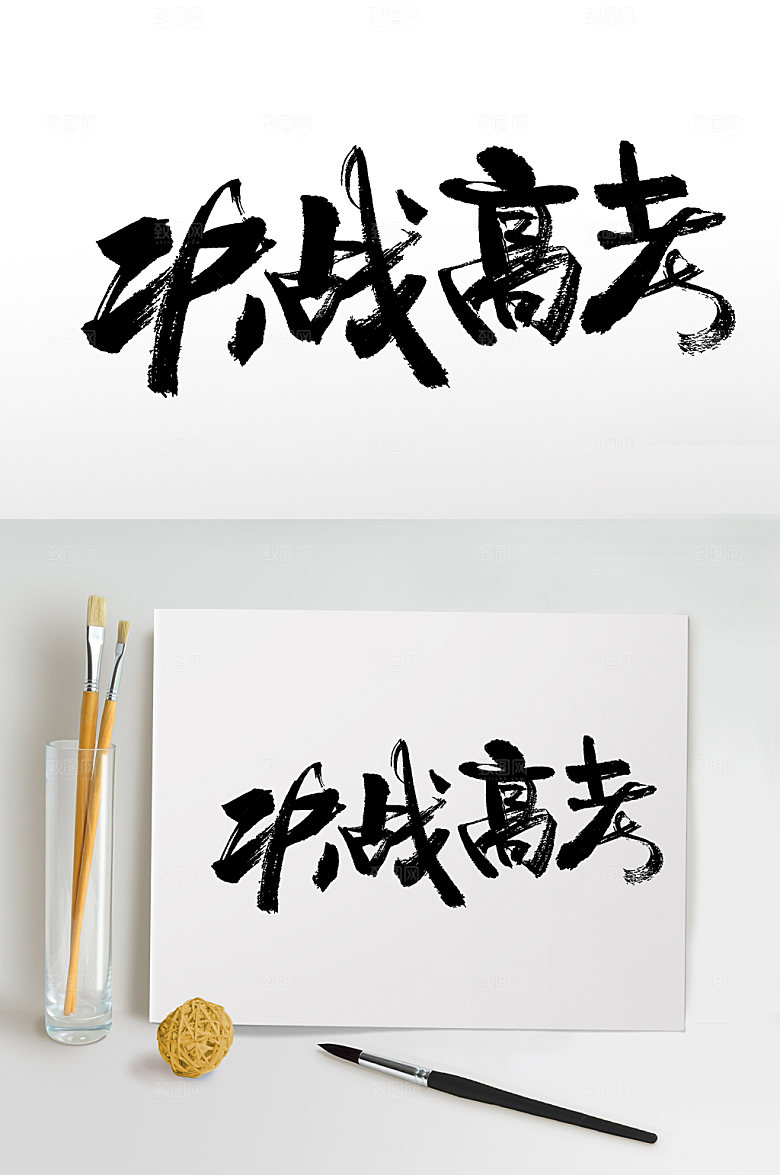 决战高考
决战高考